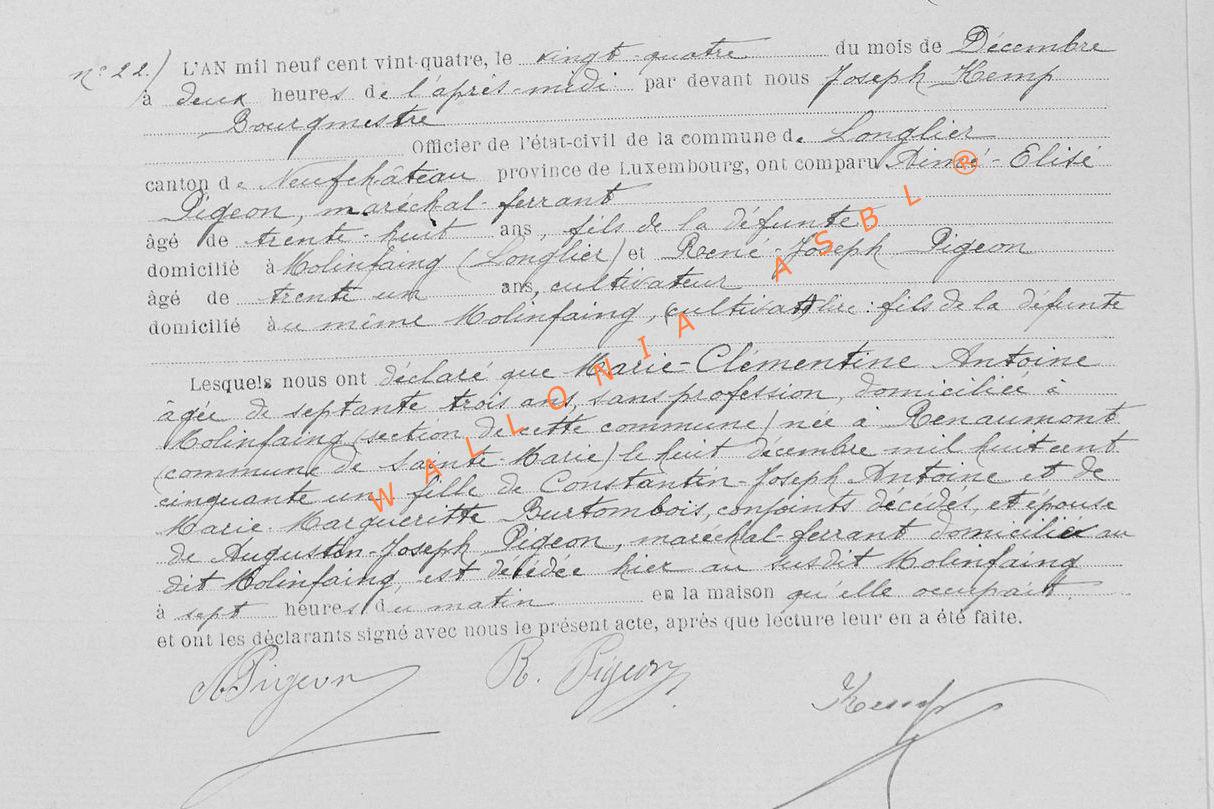 nº 22.) L'AN mil neuf cent vint-quatre, le vingt-quatre du mois de Décembre
à deux heures de l'après-midi par devant nous Joseph Kemp
Bourgmestre
Officier de l'état-civil de la commune de Longlier
canton de Neufchâteau province de Luxembourg, ont comparu Aimé-Elisé
Pigeon, maréchal-ferrant
âgé de trente-huit ans, fils de la défunte
domicilié à Molinfaing (Longlier) et René-Joseph Pigeon
âgé de trente un ans, cultivateur
domicilié au même Molinfaing, (cultivat) lire: fils de la défunte
Lesquels nous ont déclaré que Marie-Clémentine Antoine
âgée de septante trois ans, sans profession, domiciliée à
Molinfaing (section de cette commune) née à Renaumont
(commune de Sainte-Marie) le huit décembre mil huit cent
cinquante un fille de Constantin-Joseph Antoine et de
Marie-Margueritte Burtombois, conjoints décédés, et épouse
de Augustin-Joseph Pigeon, maréchal-ferrant domicilié au
dit Molinfaing, est décédée hier au susdit Molinfaing
à sept heures du matin en la maison qu'elle occupait,
et ont les déclarants signé avec nous le présent acte, après que lecture leur en a été faite.
A Pigeon R. Pigeon
Kemp
WALLONIA ASBL ®